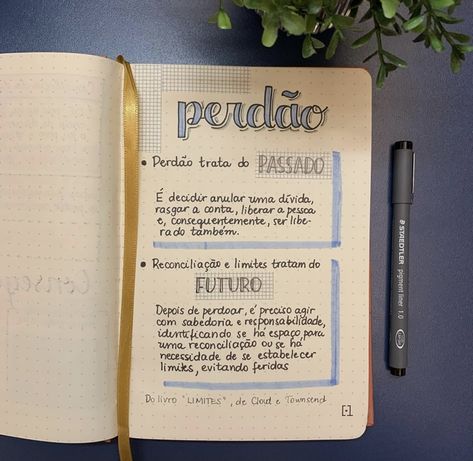 perdão
• Perdão trata do PASSADO
É decidir anular uma dívida,
rasgar a conta, liberar a pessoa
e, consequentemente, ser libe-
rado também.
• Reconciliação e limites tratam do
FUTURO
Depois de perdoar, é preciso agir
com sabedoria e responsabilidade,
identificando se há espaço para
uma reconciliação ou se há
necessidade de se estabelecer
limites, evitando feridas
Do livro "LIMITES", de Cloud e Townsend
STAEDTLER
pigment liner 1.0